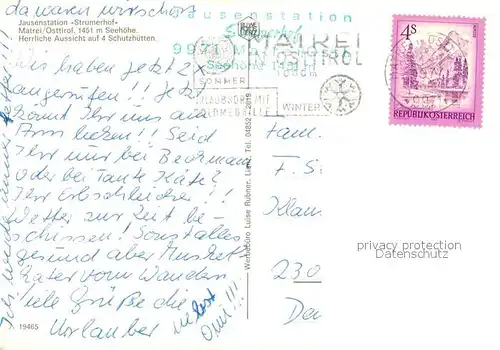 da waren wir schon
Jausenstation »Strumerhof«
Matrei/Osttirol, 1451 m Seehöhe.
Herrliche Aussicht auf 4 Schutzhütten.
Jausenstation
Strumerhof
MATREI
OSTTIROL
1000m
SOMMER
WINTER
URLAUBSORT MIT
4S
REPUBLIK ÖSTERREICH
Wir haben jetzt 2x
angerufen!! Jetzt
könnt Ihr uns am
Arm lecken!! Seid
Ihr nur bei Beckmann
oder bei Tante Käte?
Ihr Erbschleicher!!
Wetter zur Zeit be-
schissen! Sonst alles
gesund aber Muskel-
kater vom Wandern
viele Grüße die
Urlauber
nebst
Omi!!!
Fam.
F. S.
Klau
230
Dän
privacy protection
Datenschutz
Werbebüro Luise Rubner, Lienz, Tel. 04852
19465